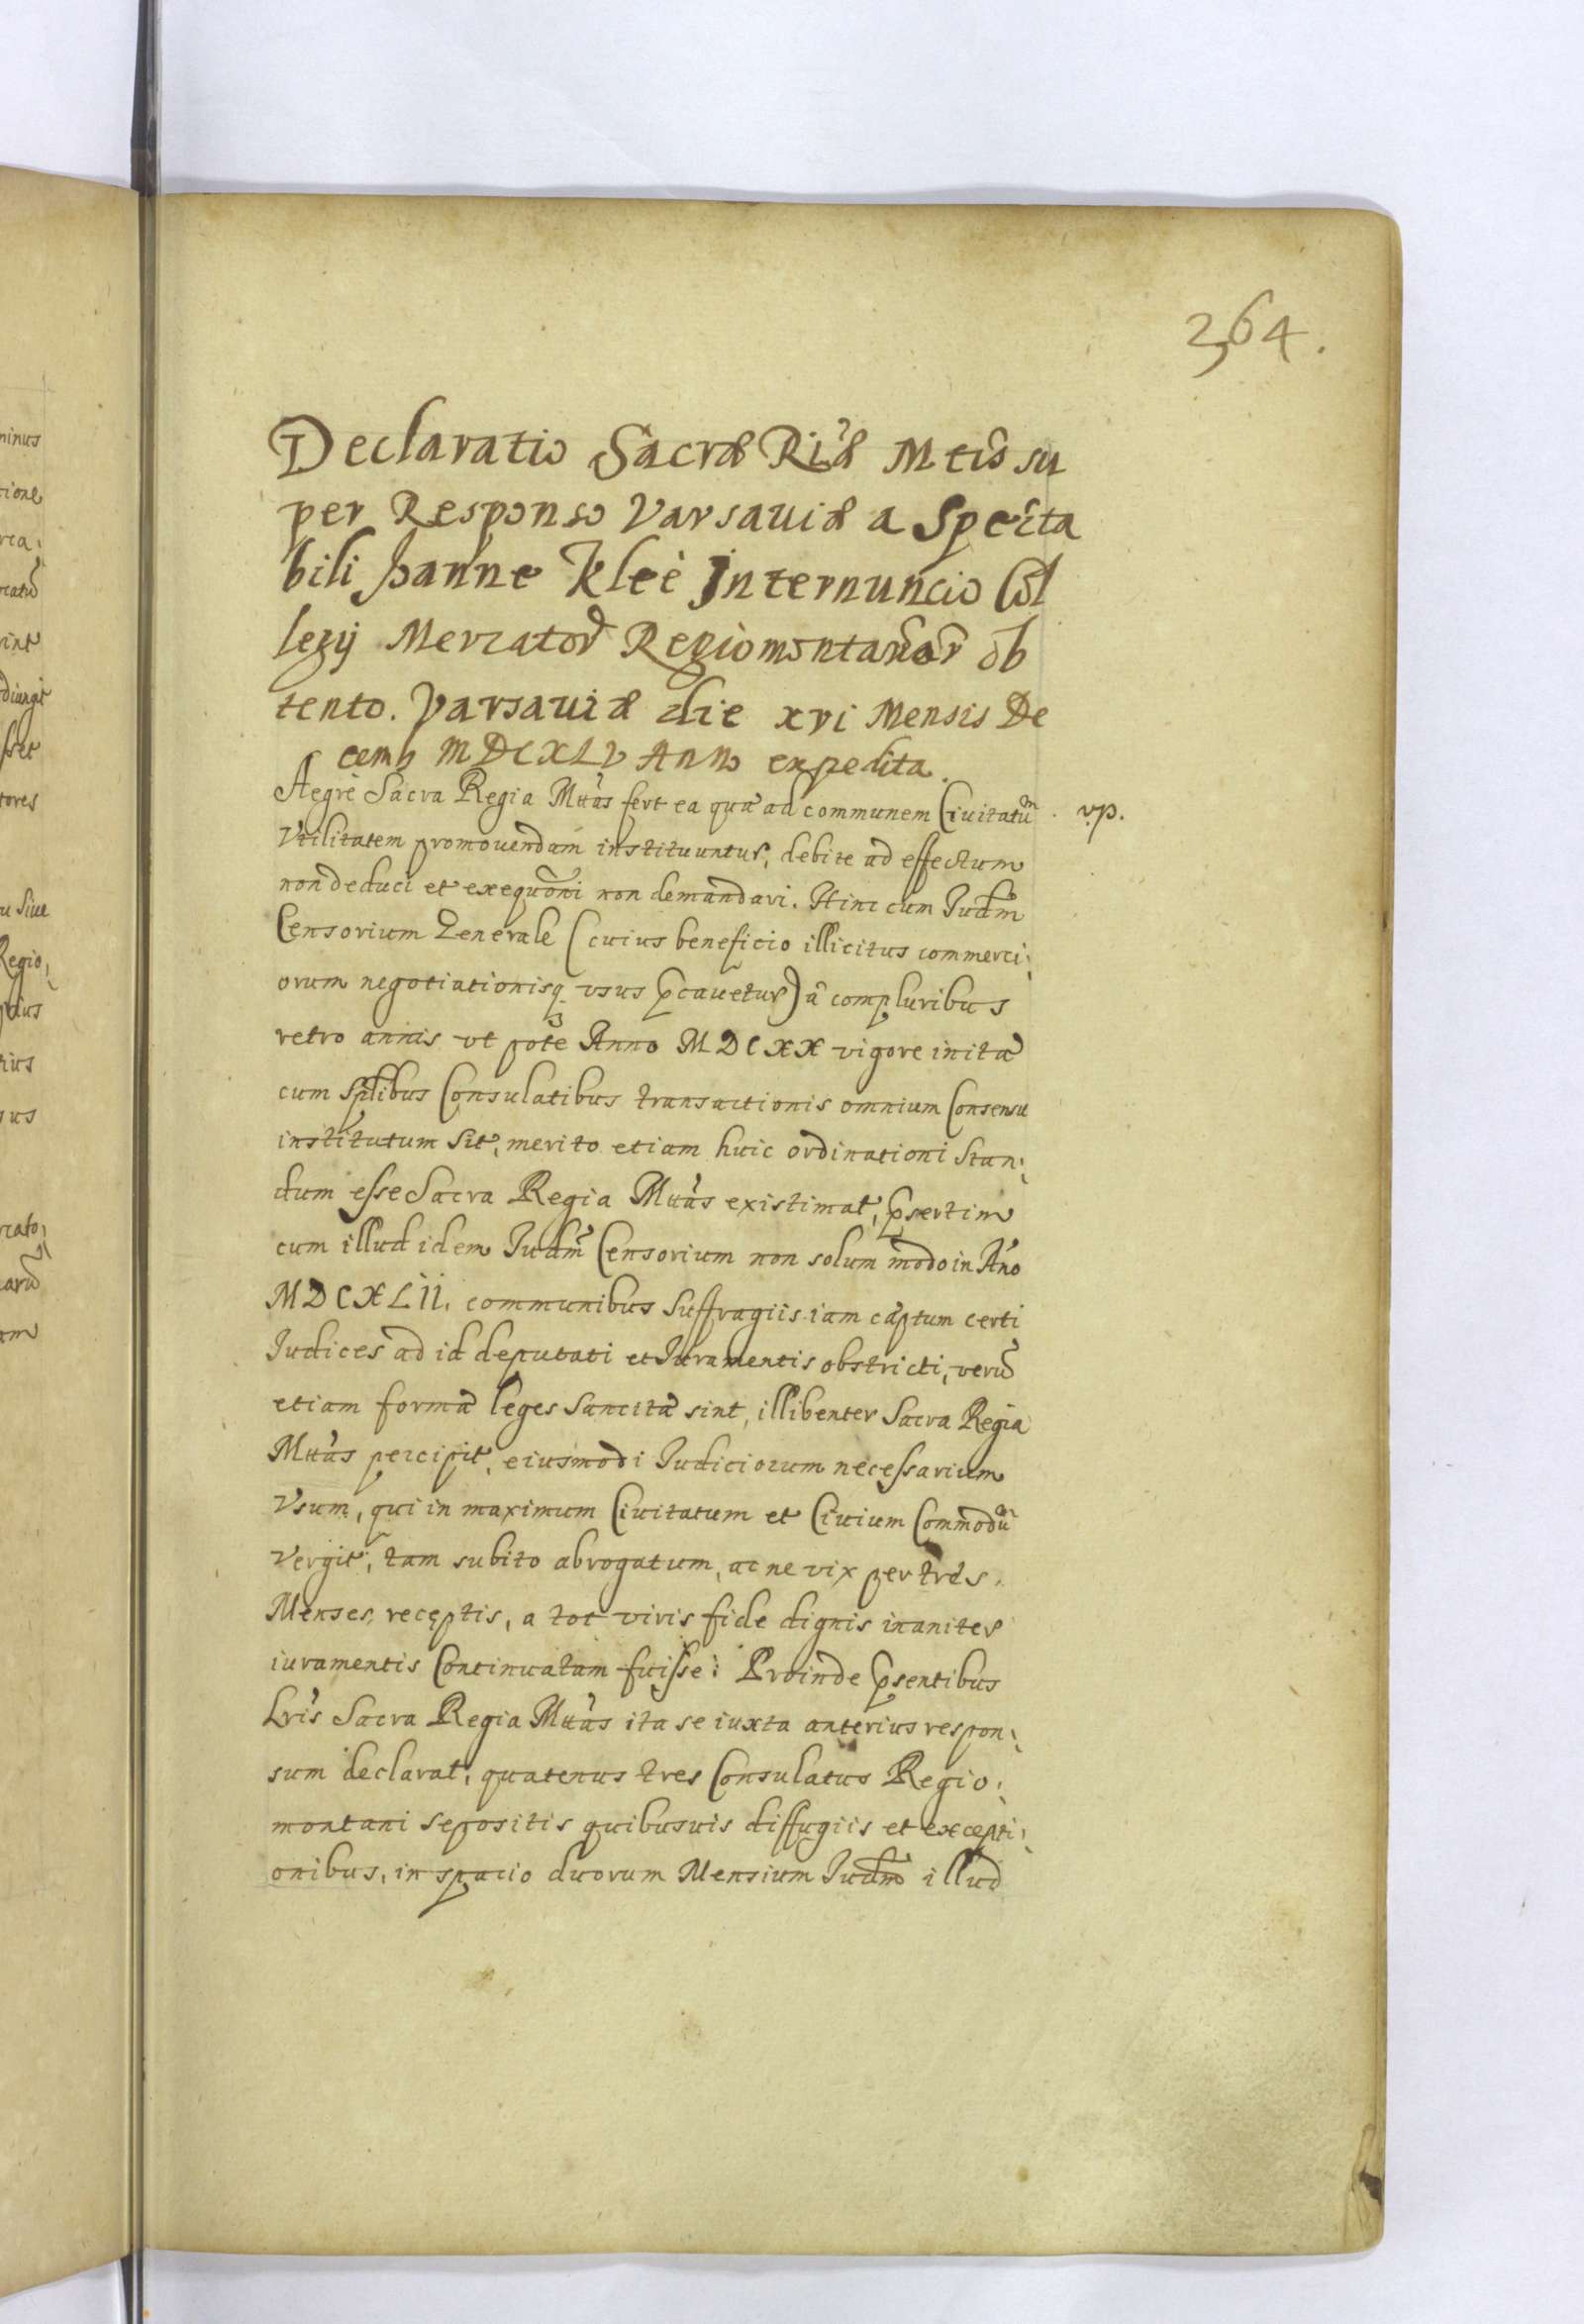 364.
Declaratio Sacræ Riæ Mtis su
per Responso Varsaviæ a Specta
bili Hanne Kleè Internuncio Col
legij Mercator Regiomontanor ob
tento. Varsaviæ die xvi Mensis De
cemb MDCXLV Anno expedita.
Aegrè Sacra Regia Mttas fert ea quæ ad communem Ciuitatum
v.p.
Vtilitatem promouendam instituuntur, debite ad effectum
non deduci et exequoni non demandari. Hinc cum Judm
Censorium Generale (cuius beneficio illicitus commerci:
orum negotiationisq vsus pcauetur) a compluribus
retro annis vt pote Anno MDCXX vigore initæ
cum Splibus Consulatibus transactionis omnium Consensu
institutum sit, merito etiam huic ordinationi stan:
dum esse Sacra Regia Mttas existimat, psertim
cum illud idem Judm Censorium non solum modo in Ano
MDCXLII. communibus suffragiis iam cæptum certi
Judices ad id deputati et Juramentis obstricti, verū
etiam formæ leges sancitæ sint, illibenter Sacra Regia
Mttas percipit, eiusmodi Judiciorum necessarium
Vsum, qui in maximum Ciuitatum et Ciuium Commodū
vergit, tam subito abrogatum, ac ne vix per tres
Menses receptis, a tot viris fide dignis inaniter
iuramentis Continuatam fuisse: Proinde psentibus
Lris Sacra Regia Mttas ita se iuxta anterius respon:
sum declarat, quatenus tres Consulatus Regio:
montani sepositis quibusuis diffugiis et excepti:
onibus, in spacio duorum Mensium Judm illud